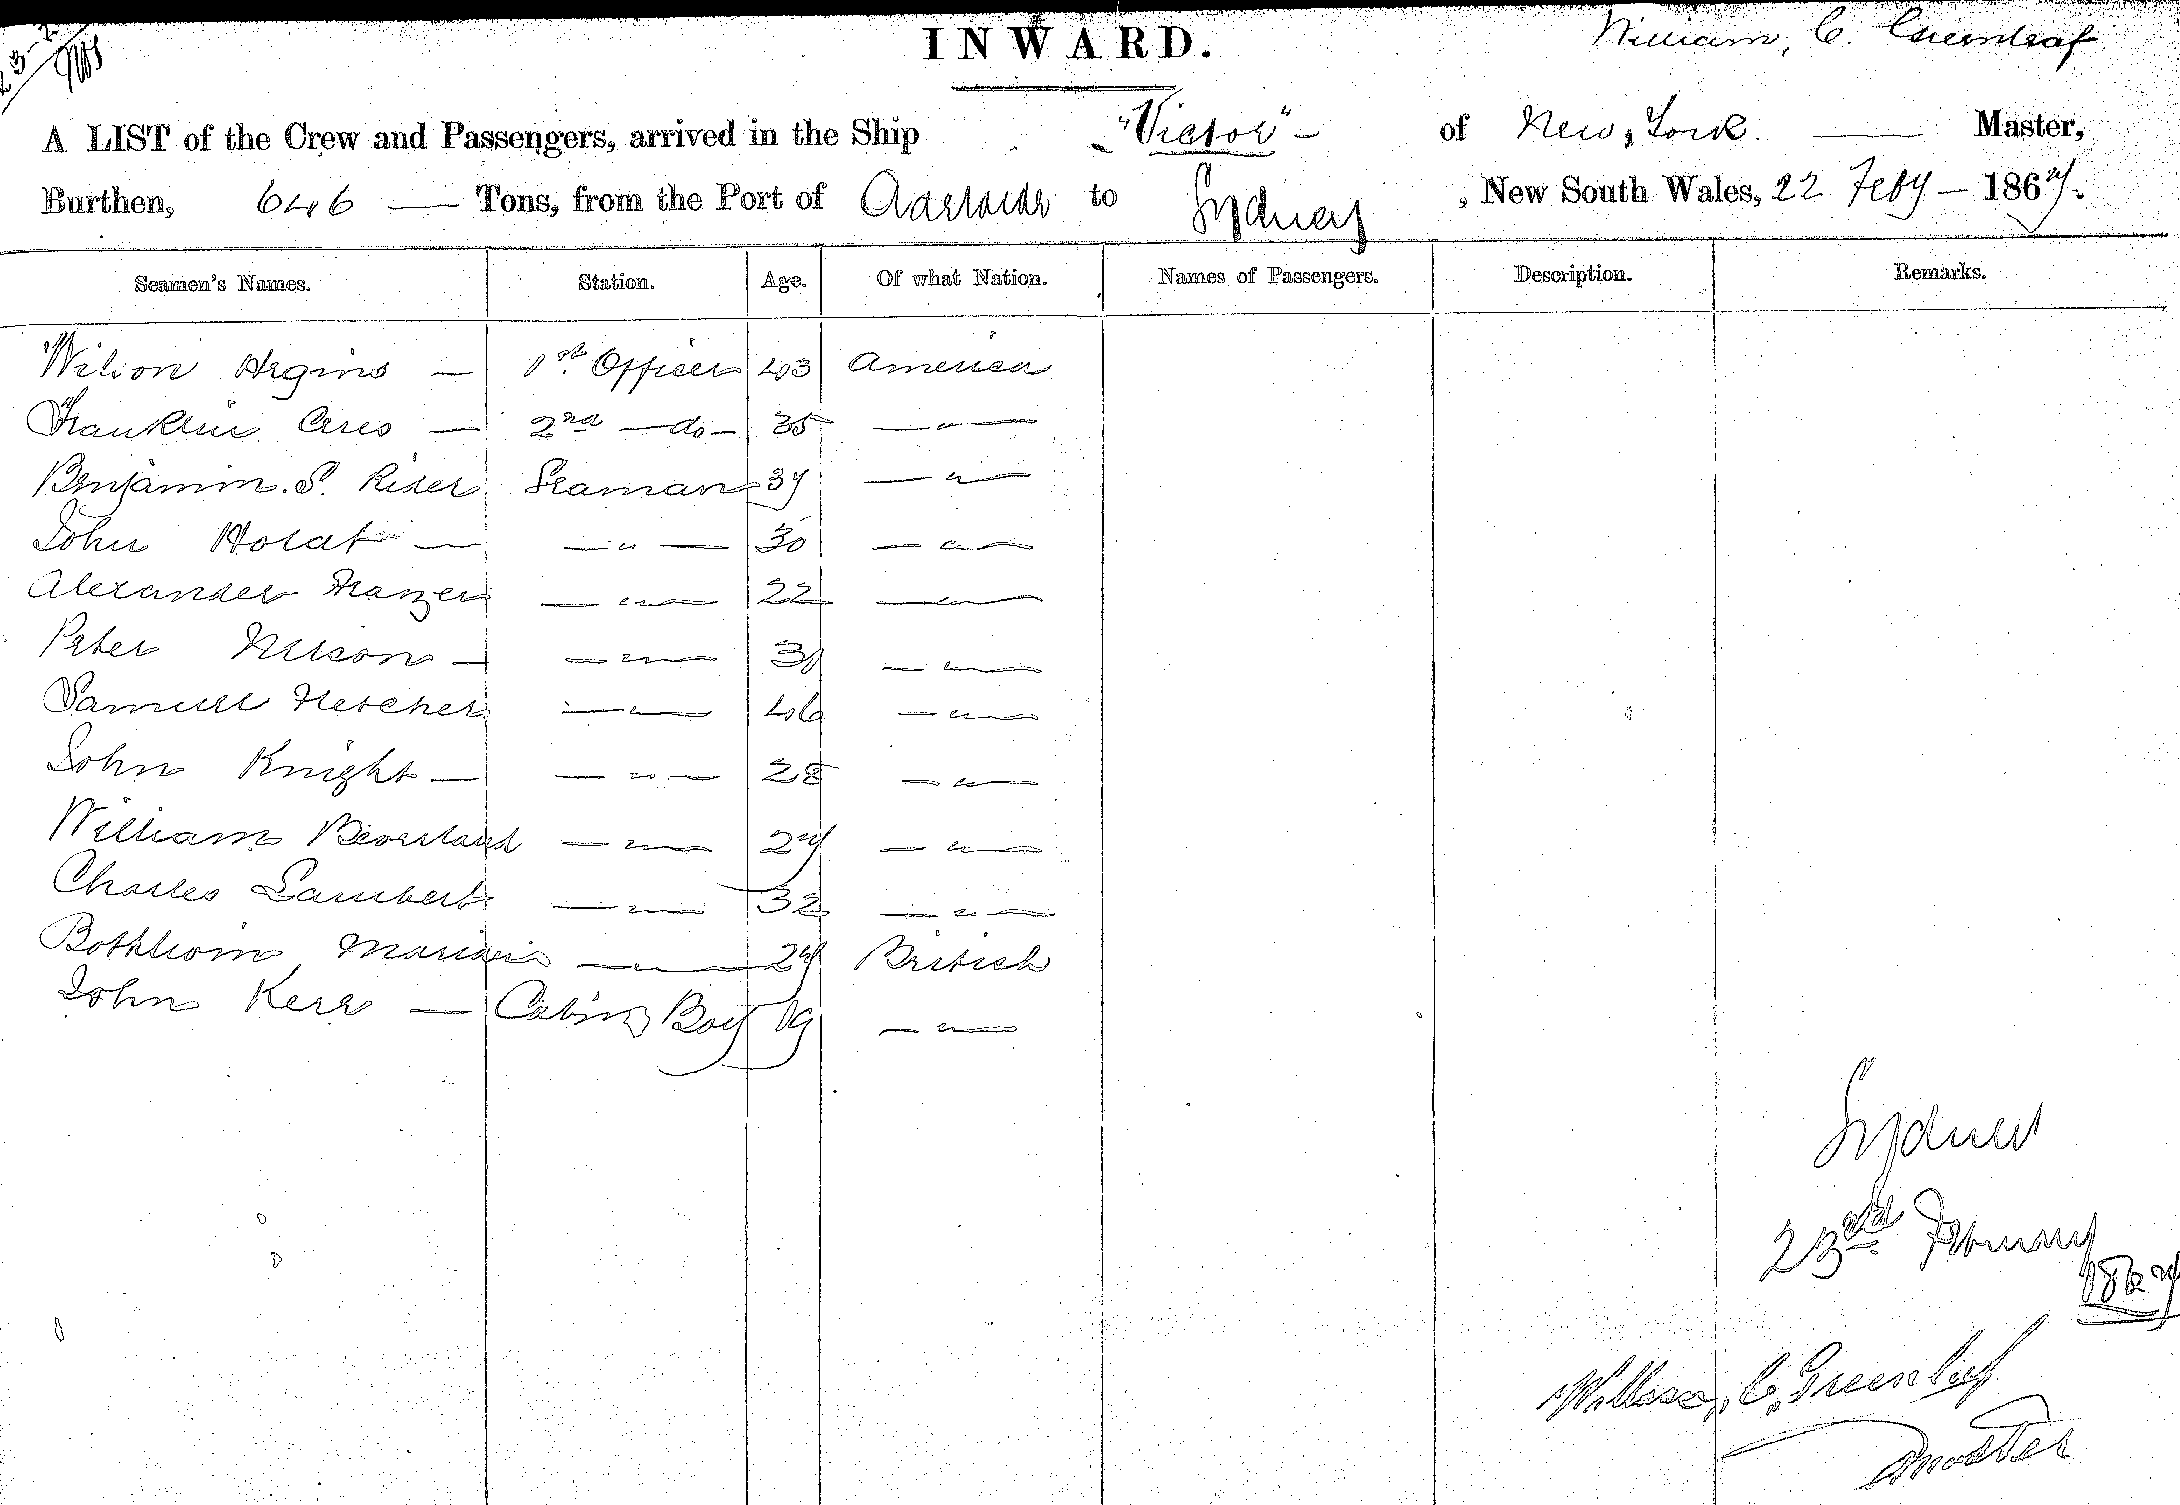 INWARD.
William, C. Greenleaf
A LIST of the Crew and Passengers, arrived in the Ship "Victor" — of New, York. — Master,
Burthen, 646 — Tons, from the Port of Adelaide to Sydney , New South Wales, 22 Feby — 1867.
Seamen's Names. Station. Age. Of what Nation. Names of Passengers. Description. Remarks.
Wilson — 1st. Officer 43 America
Franklin — 2nd — do — 35 — " —
Benjamin. S. Rider Seaman 37 — " —
John — — " — 30 — " —
Alexander Frazer — " — 22 — " —
Peter Nelson — — " — — " —
Samuel Fletcher — " — 46 — " —
John Knight — — " — 28 — " —
William — " — 27 — " —
Charles Lambert — " — 32 — " —
— " — 27 British
John Kerr — Cabin Boy 19 — " —
Sydney
23rd February
1867
William, C. Greenleaf
Master